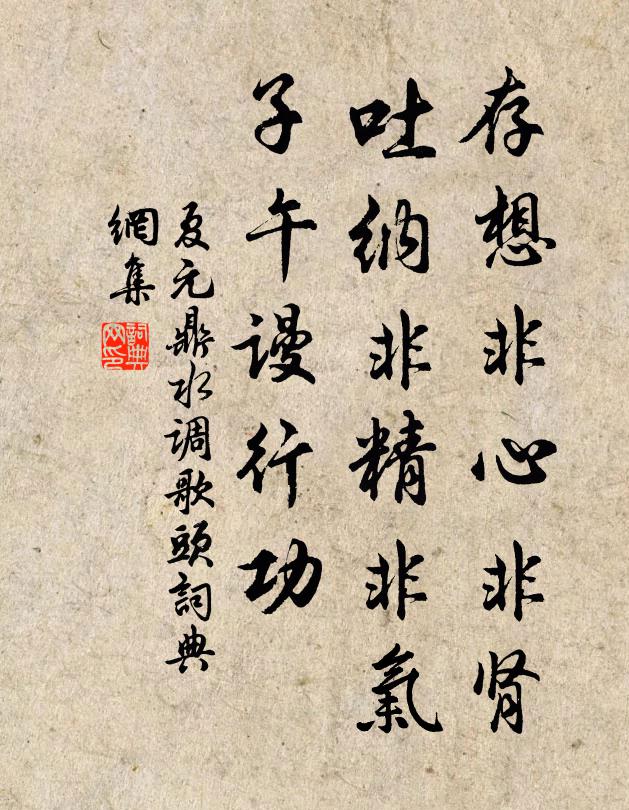 存想非心非肾
吐纳非精非氣
子午謾行功
夏元鼎水调歌頭詞典
網集
詞典
网印